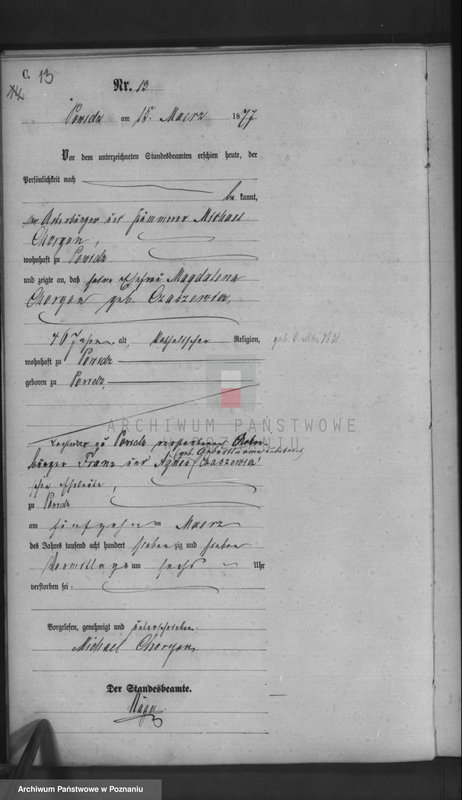 C. 13
Nr. 13
Powidz am 15 Maerz 1877
Vor dem unterzeichneten Standesbeamten erschien heute, der
Persönlichkeit nach
be kannt,
der Ackerbürger und Kämmerer Michael
Chorgan,
wohnhaft zu Powidz
und zeigte an, daß seine Ehefrau Magdalena
Chorgan geb. Czaszewicz,
46 Jahre alt, katholischer Religion,
wohnhaft zu Powidz
geboren zu Powidz,
ARCHIWUM PAŃSTWOWE
W POZNANIU
Tochter der zu Powidz verstorbenen Acker
bürger Franz und Agnes Czaszewicz
Eheleute,
zu Powidz
am fünfzehn ten Maerz
des Jahrs tausend acht hundert sieben zig und sieben
Vormittags um sechs Uhr
verstorben sei
Vorgelesen, genehmigt und unterschrieben
Michael Chorgan
Der Standesbeamte.
Archiwum Państwowe w Poznaniu